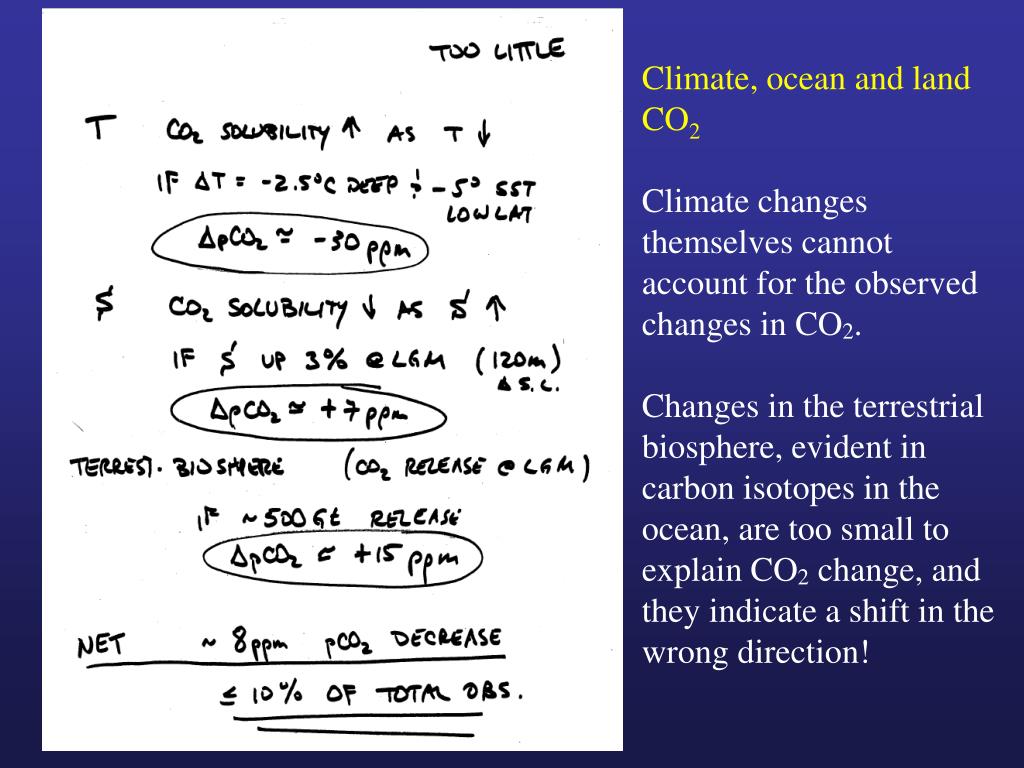 TOO LITTLE
T CO₂ SOLUBILITY ↑ AS T ↓
IF ΔT = -2.5°C DEEP & -5° SST
LOW LAT
ΔpCO₂ ≃ -30 ppm
S CO₂ SOLUBILITY ↓ AS S ↑
IF S UP 3% @ LGM (120m)
Δ S.L.
ΔpCO₂ ≃ +7 ppm
TERREST. BIOSPHERE (CO₂ RELEASE @ LGM)
IF ~500 Gt RELEASE
ΔpCO₂ ≃ +15 ppm
NET ~ 8 ppm pCO₂ DECREASE
≤ 10% OF TOTAL OBS.
Climate, ocean and land
CO₂
Climate changes
themselves cannot
account for the observed
changes in CO₂.
Changes in the terrestrial
biosphere, evident in
carbon isotopes in the
ocean, are too small to
explain CO₂ change, and
they indicate a shift in the
wrong direction!